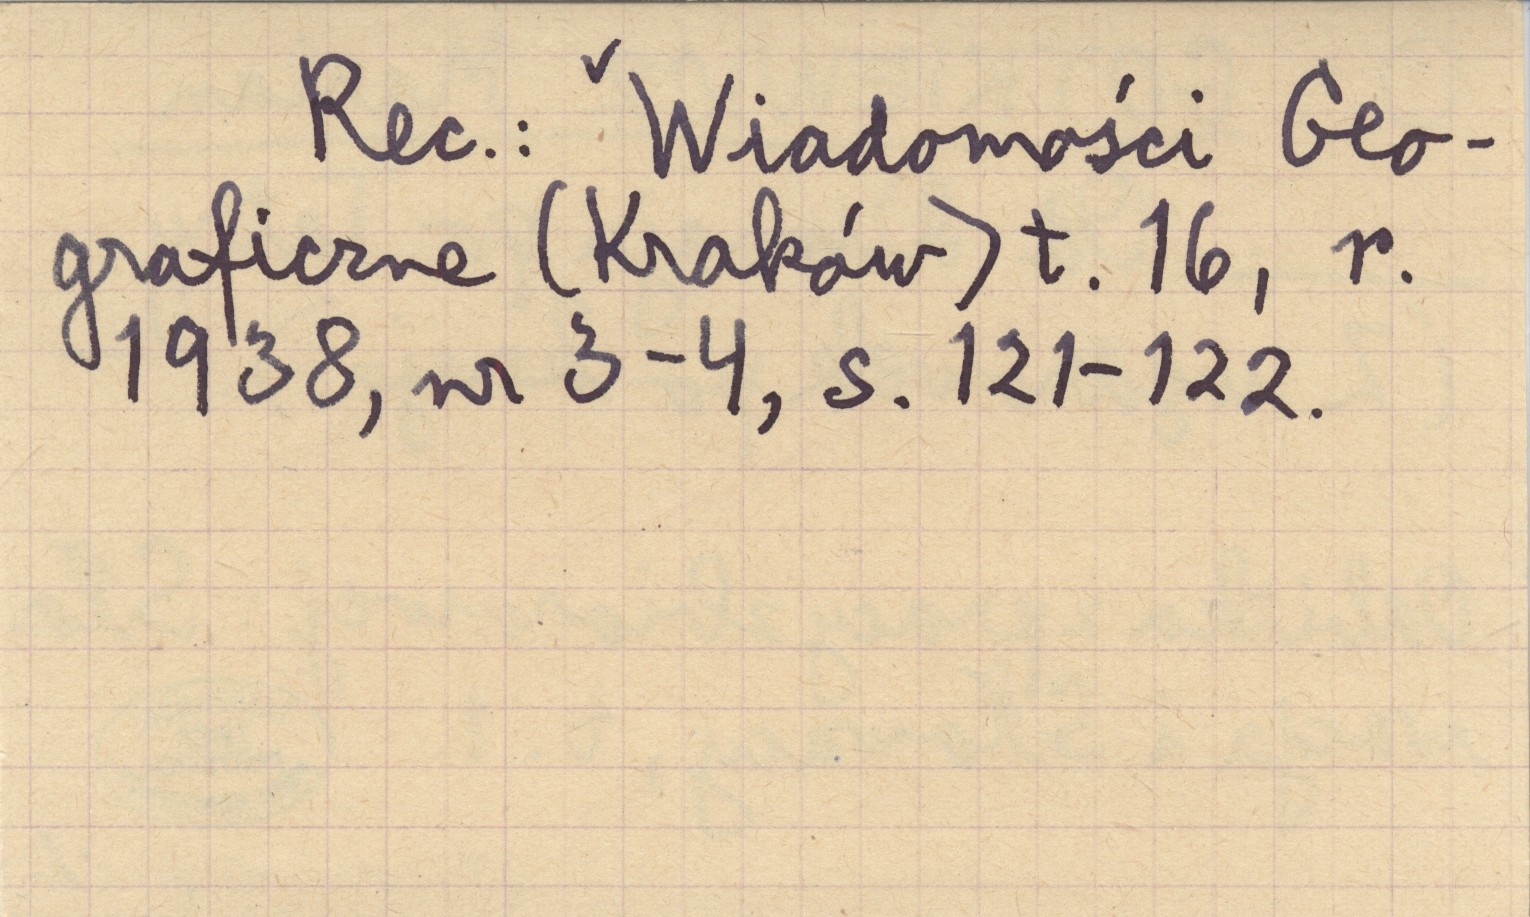 Rec.: ✓Wiadomości Geo-
graficzne (Kraków) t. 16, r.
1938, nr 3-4, s. 121-122.